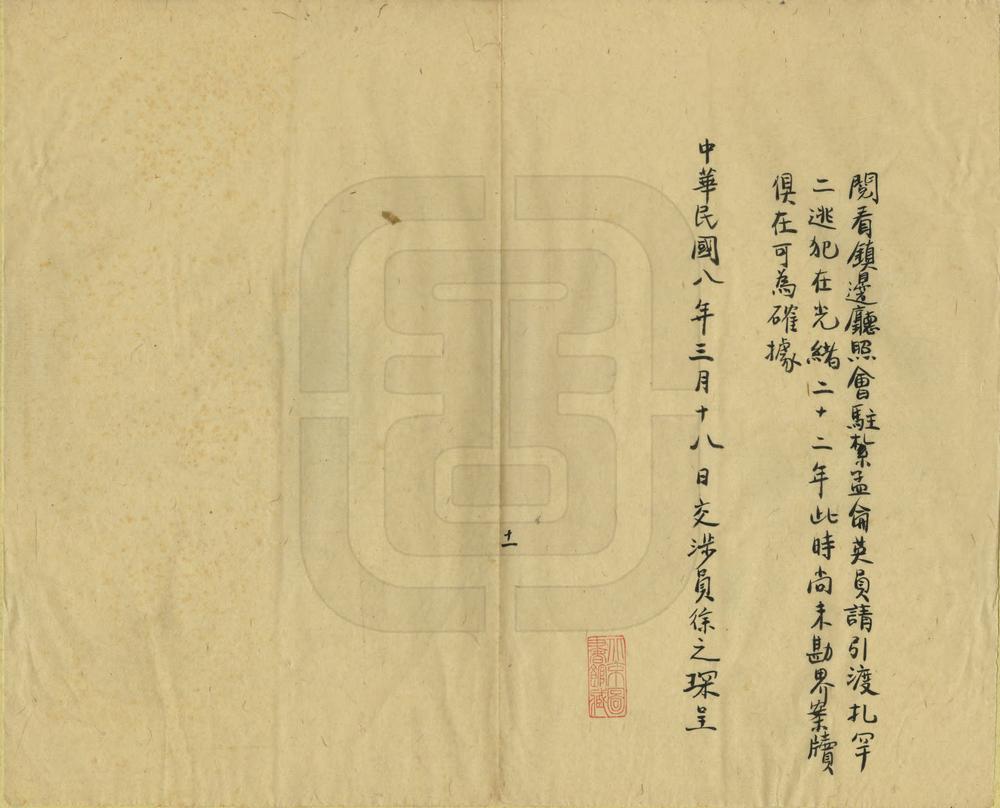 閱看鎮邊廳照會駐紮孟侖英員請引渡扎罕
二逃犯在光緒二十二年此時尚未勘界案牘
俱在可為確據
中華民國八年三月十八日交涉員徐之琛呈
十一
北京圖
書館藏